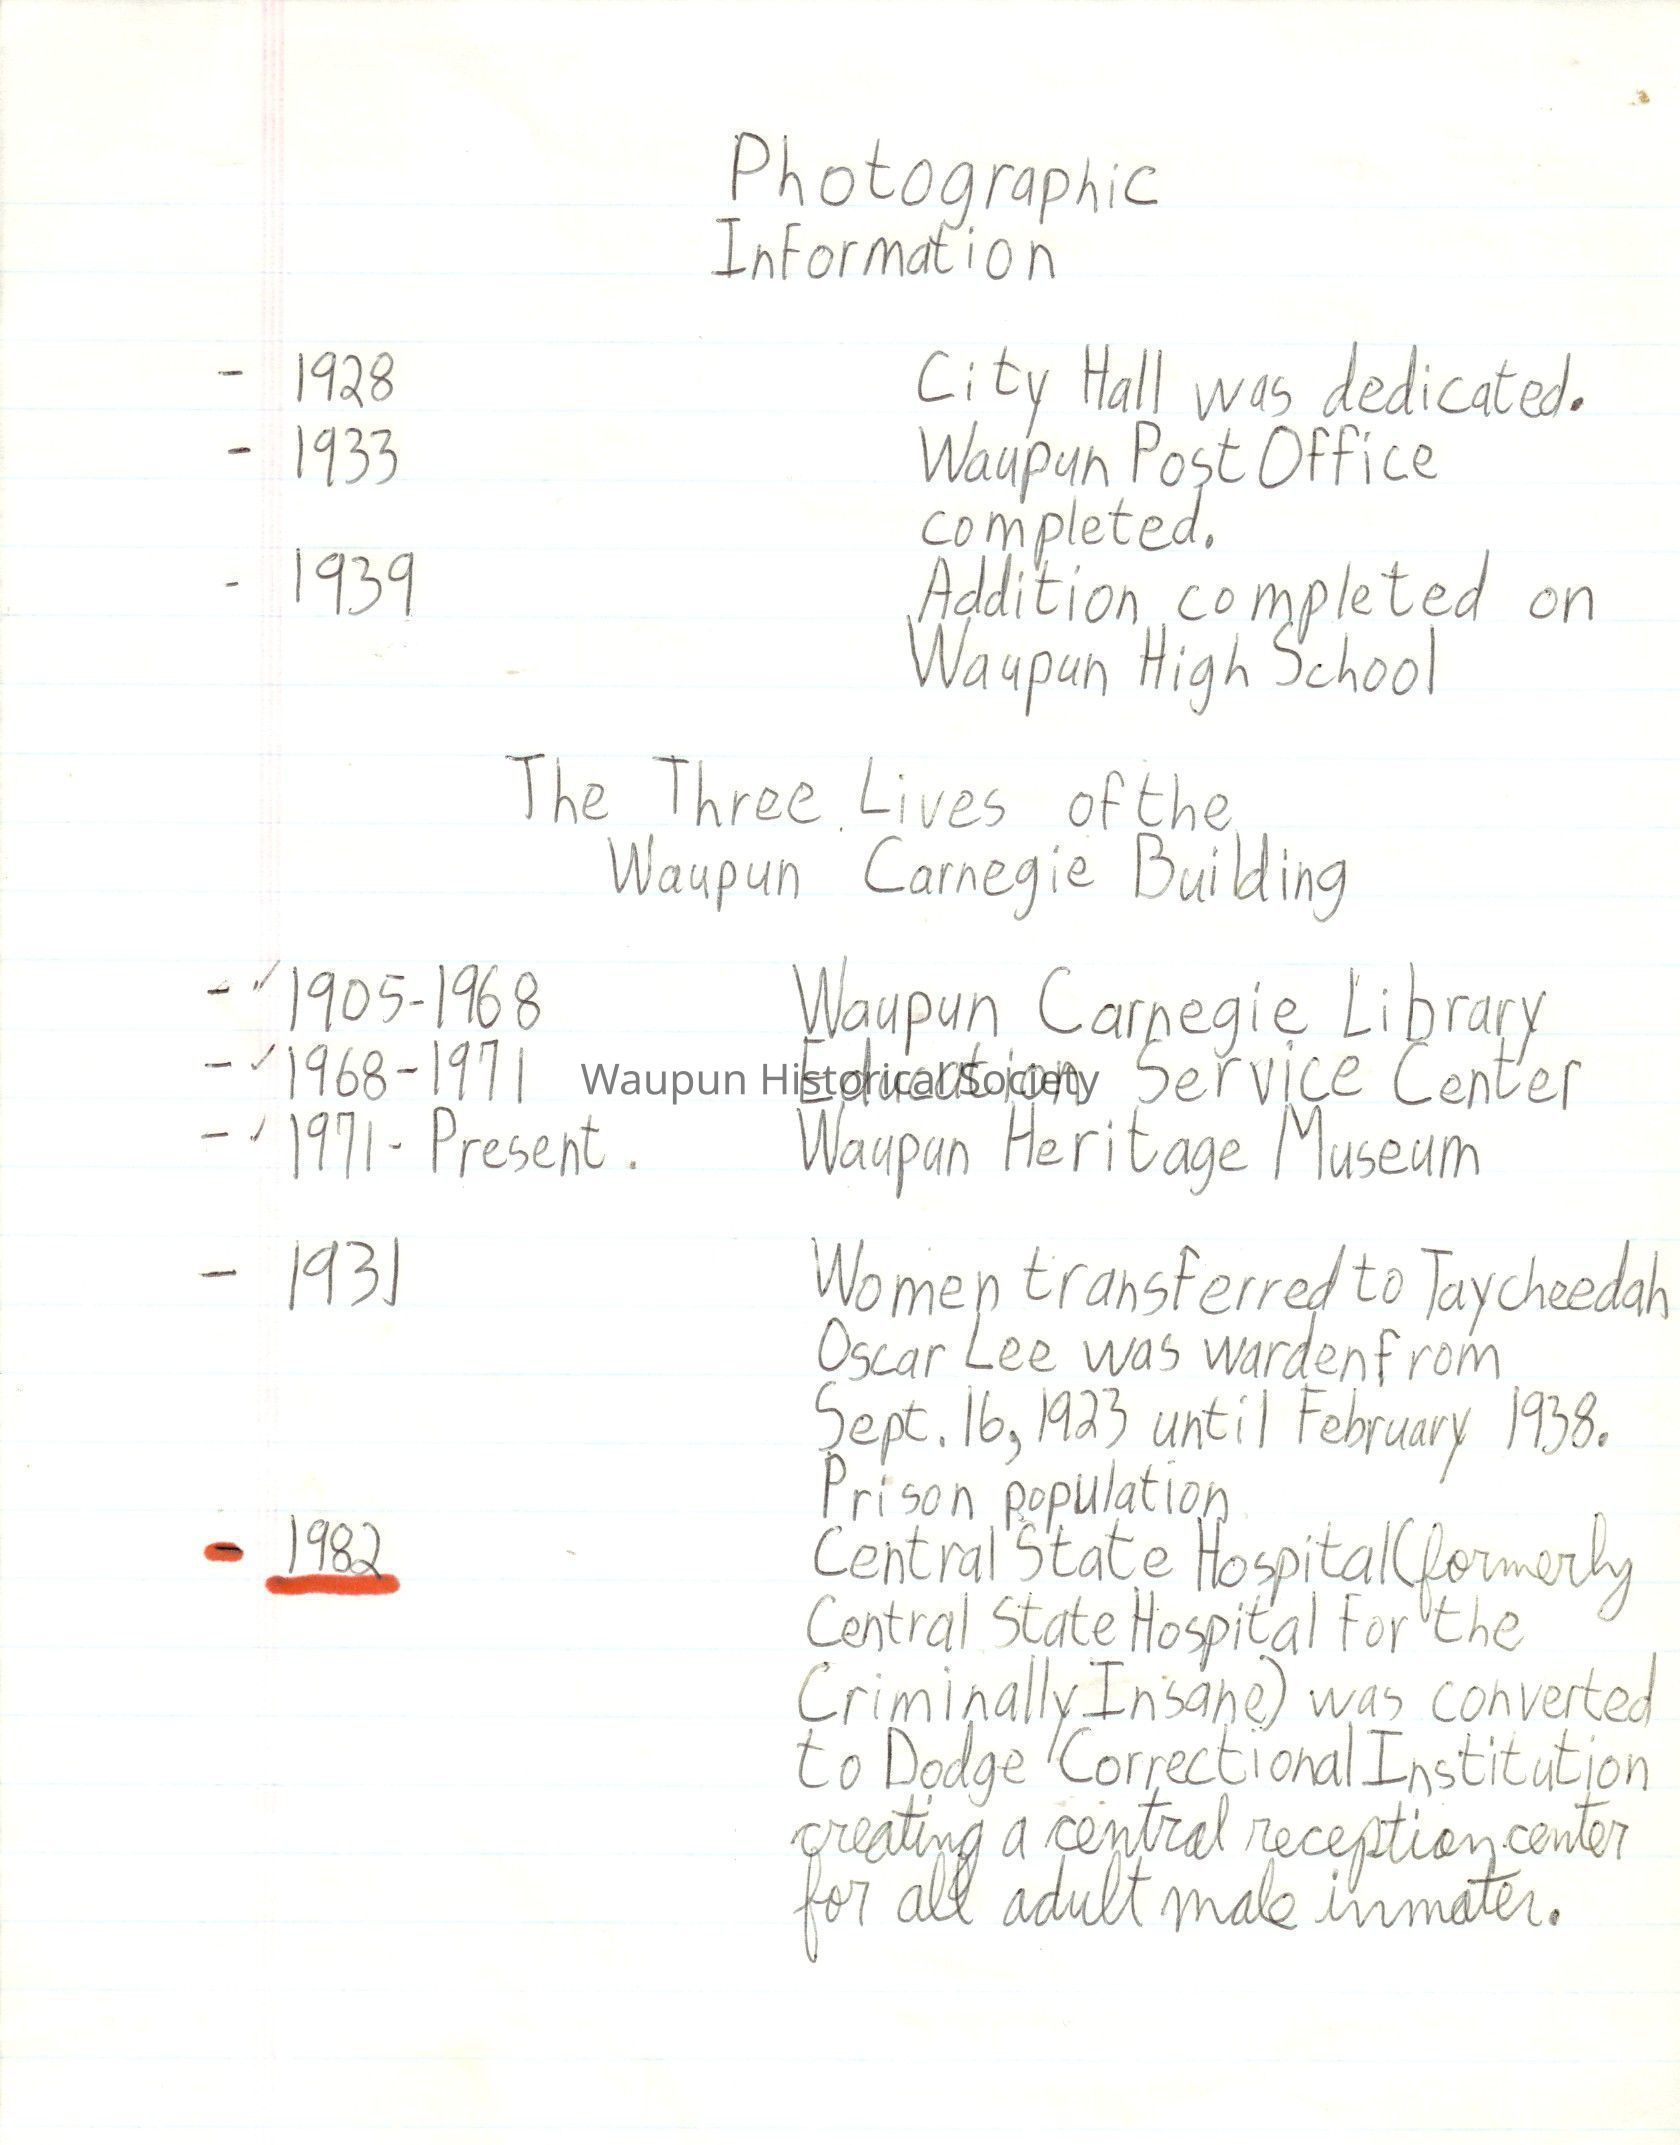 Photographic
Information
- 1928 City Hall was dedicated.
- 1933 Waupun Post Office
completed.
- 1939 Addition completed on
Waupun High School
The Three Lives of the
Waupun Carnegie Building
- ✓ 1905-1968 Waupun Carnegie Library
- ✓ 1968-1971 Education Service Center
Waupun Historical Society
- ✓ 1971- Present. Waupun Heritage Museum
- 1931 Women transferred to Taycheedah
Oscar Lee was warden from
Sept. 16, 1923 until February 1938.
Prison population
- 1982 Central State Hospital (formerly
Central State Hospital for the
Criminally Insane) was converted
to Dodge Correctional Institution
creating a central reception center
for all adult male inmates.